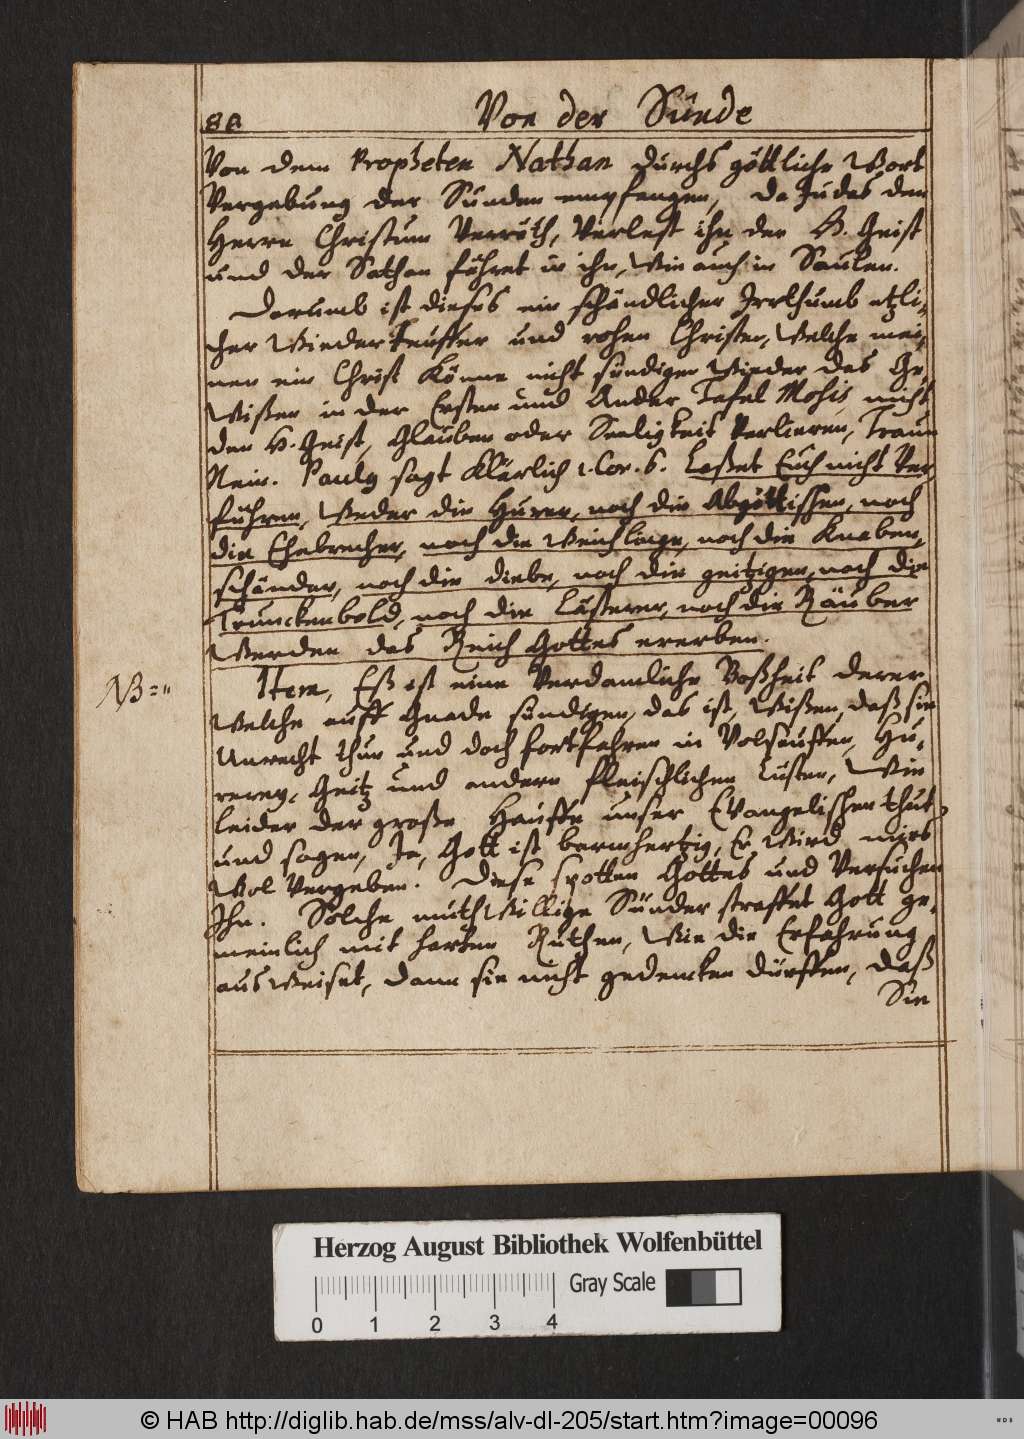 80
Von der Sünde
Von dem Propheten Nathan durchs göttliche Wort
Vergebung der Sünden empfangen, da Judas den
Herrn Christum Verräth, Verlest ihn der H. Geist
und der Sathan fähret in ihn, Wie auch in Saulen.
Darumb ist dieses ein schändlicher Irrthumb etzli-
cher WiederTeuffer und rohen Christen, Welche mei-
nen ein Christ Könne nicht sündigen Wieder das Ge-
Wißen in der Ersten und Ander Tafel Mosis, nicht
den H. Geist, Glauben oder Seeligkeit Verlieren, Traun
Nein. Paulg sagt Klärlich 1. Cor. 6. Laßet Euch nicht Ver-
führen, Weder die Hurer, noch die Abgöttischen, noch
die Ehebrecher, noch die Weichlinge, noch die Knaben-
schänder, noch die diebe, noch die geitzigen, noch die
Trunckenbold, noch die Lästerer, noch die Räuber
Werden das Reich Gottes ererben.
NB
Item, Eß ist eine Verdamliche Boßheit derer,
Welche auff Gnade sündigen, das ist, Wißen, daß sie
Unrecht thun und doch fortfahren in Volsauffen, Hu-
rerey, Geitz und andern fleischlichen Lüsten, Wie
leider der große Hauffe unser Evangelischen thut,
und sagen, Ja, Gott ist barmhertzig, Er Wird mirs
Wol Vergeben. Diese spotten Gottes und Versuchen
Ihn. Solche muthWillige Sünder straffet Gott ge-
meinlich mit harten Ruthen, Wie die Erfahrung
ausWeiset, dann sie nicht gedencken dürffen, daß
Sie
Herzog August Bibliothek Wolfenbüttel
Gray Scale
0 1 2 3 4
© HAB http://diglib.hab.de/mss/alv-dl-205/start.htm?image=00096